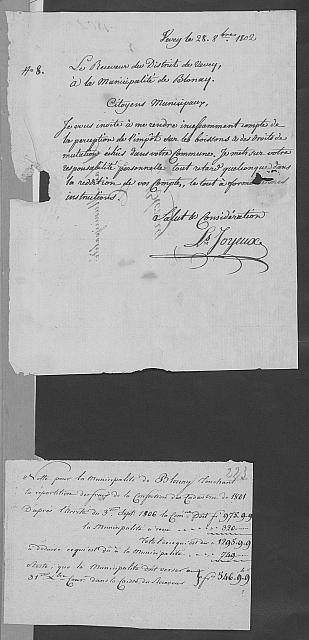 Vevey le 28. 8bres 1802
No 8.
Le Receveur du District de Vevey,
à la Municipalité de Blonay.
Citoyens Municipaux,
Je vous invite à me rendre incessamment compte de
la perception de l'impôt sur les boissons & des droits de
mutation échus dans votre Commune. Je mets sur votre
responsabilité personnelle tout retard quelconque dans
la reddition de vos Comptes, le tout à forme
instructions.
Salut & Considération
Ls. Joyeux
223
Notte pour la Municipalité de Blonay touchant
la répartition des frais de la Confection des Cadastres de 1801
D'après l'arrêté du 3e. Sept. 1806 la Comune Doit fs. 975.9.9
la Municipalité a reçu 320
Total ce qui est dû 1295.9.9
à déduire ce qui est dû à la Municipalité 749
Reste, que la Municipalité doit verser au
31e. Xbre Cour. dans la Caisse du Receveur fs. 546.9.9